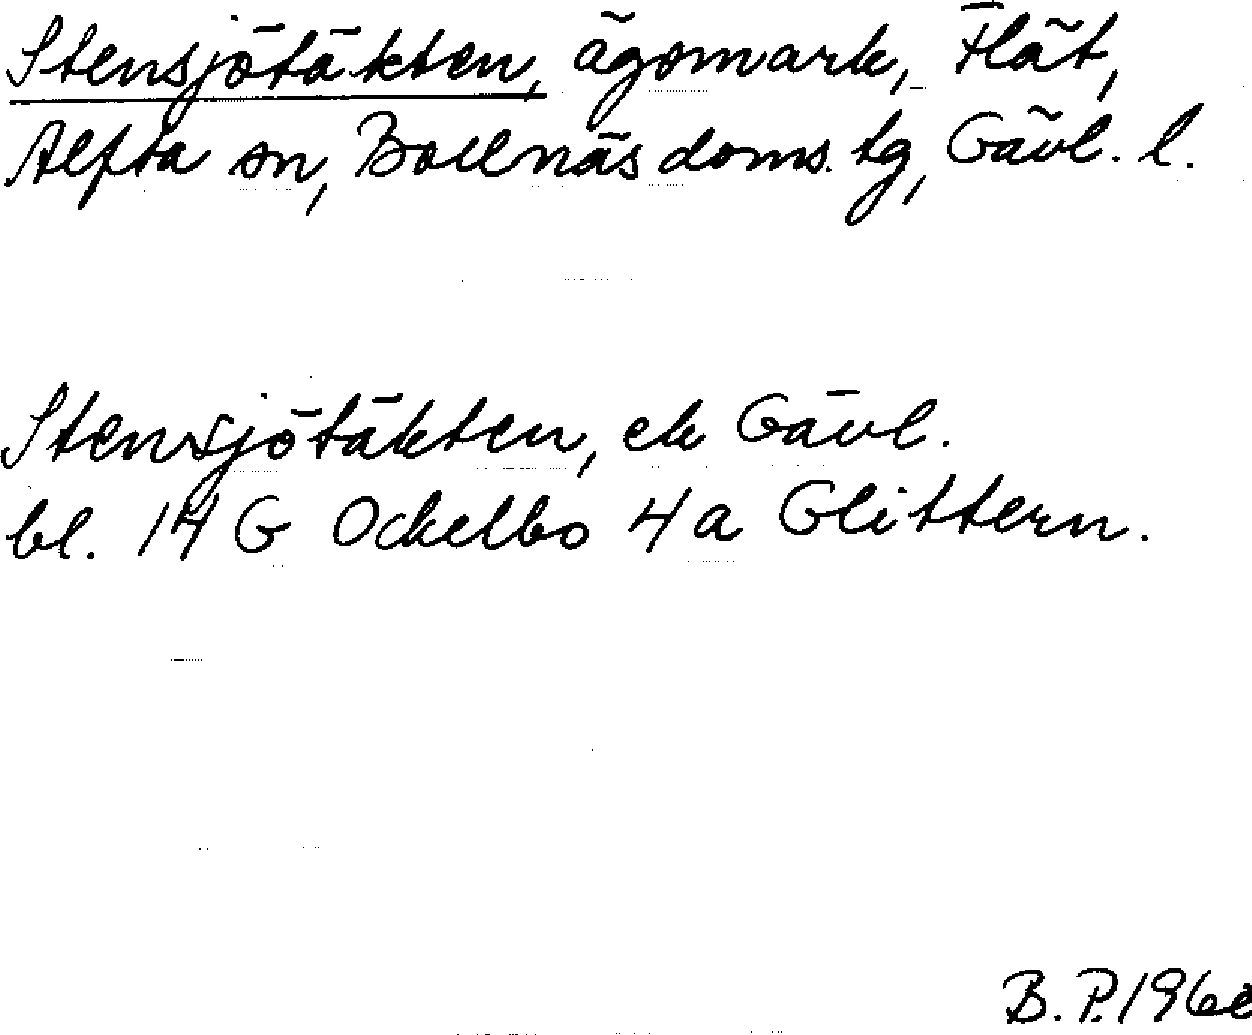 Stensjötäkten, ägomark, Flät,
Alfta sn, Bollnäs doms. tg, Gävl. l.
Stensjötäkten, ek Gävl.
bl. 14 G Ockelbo 4 a Glittern.
B. P.